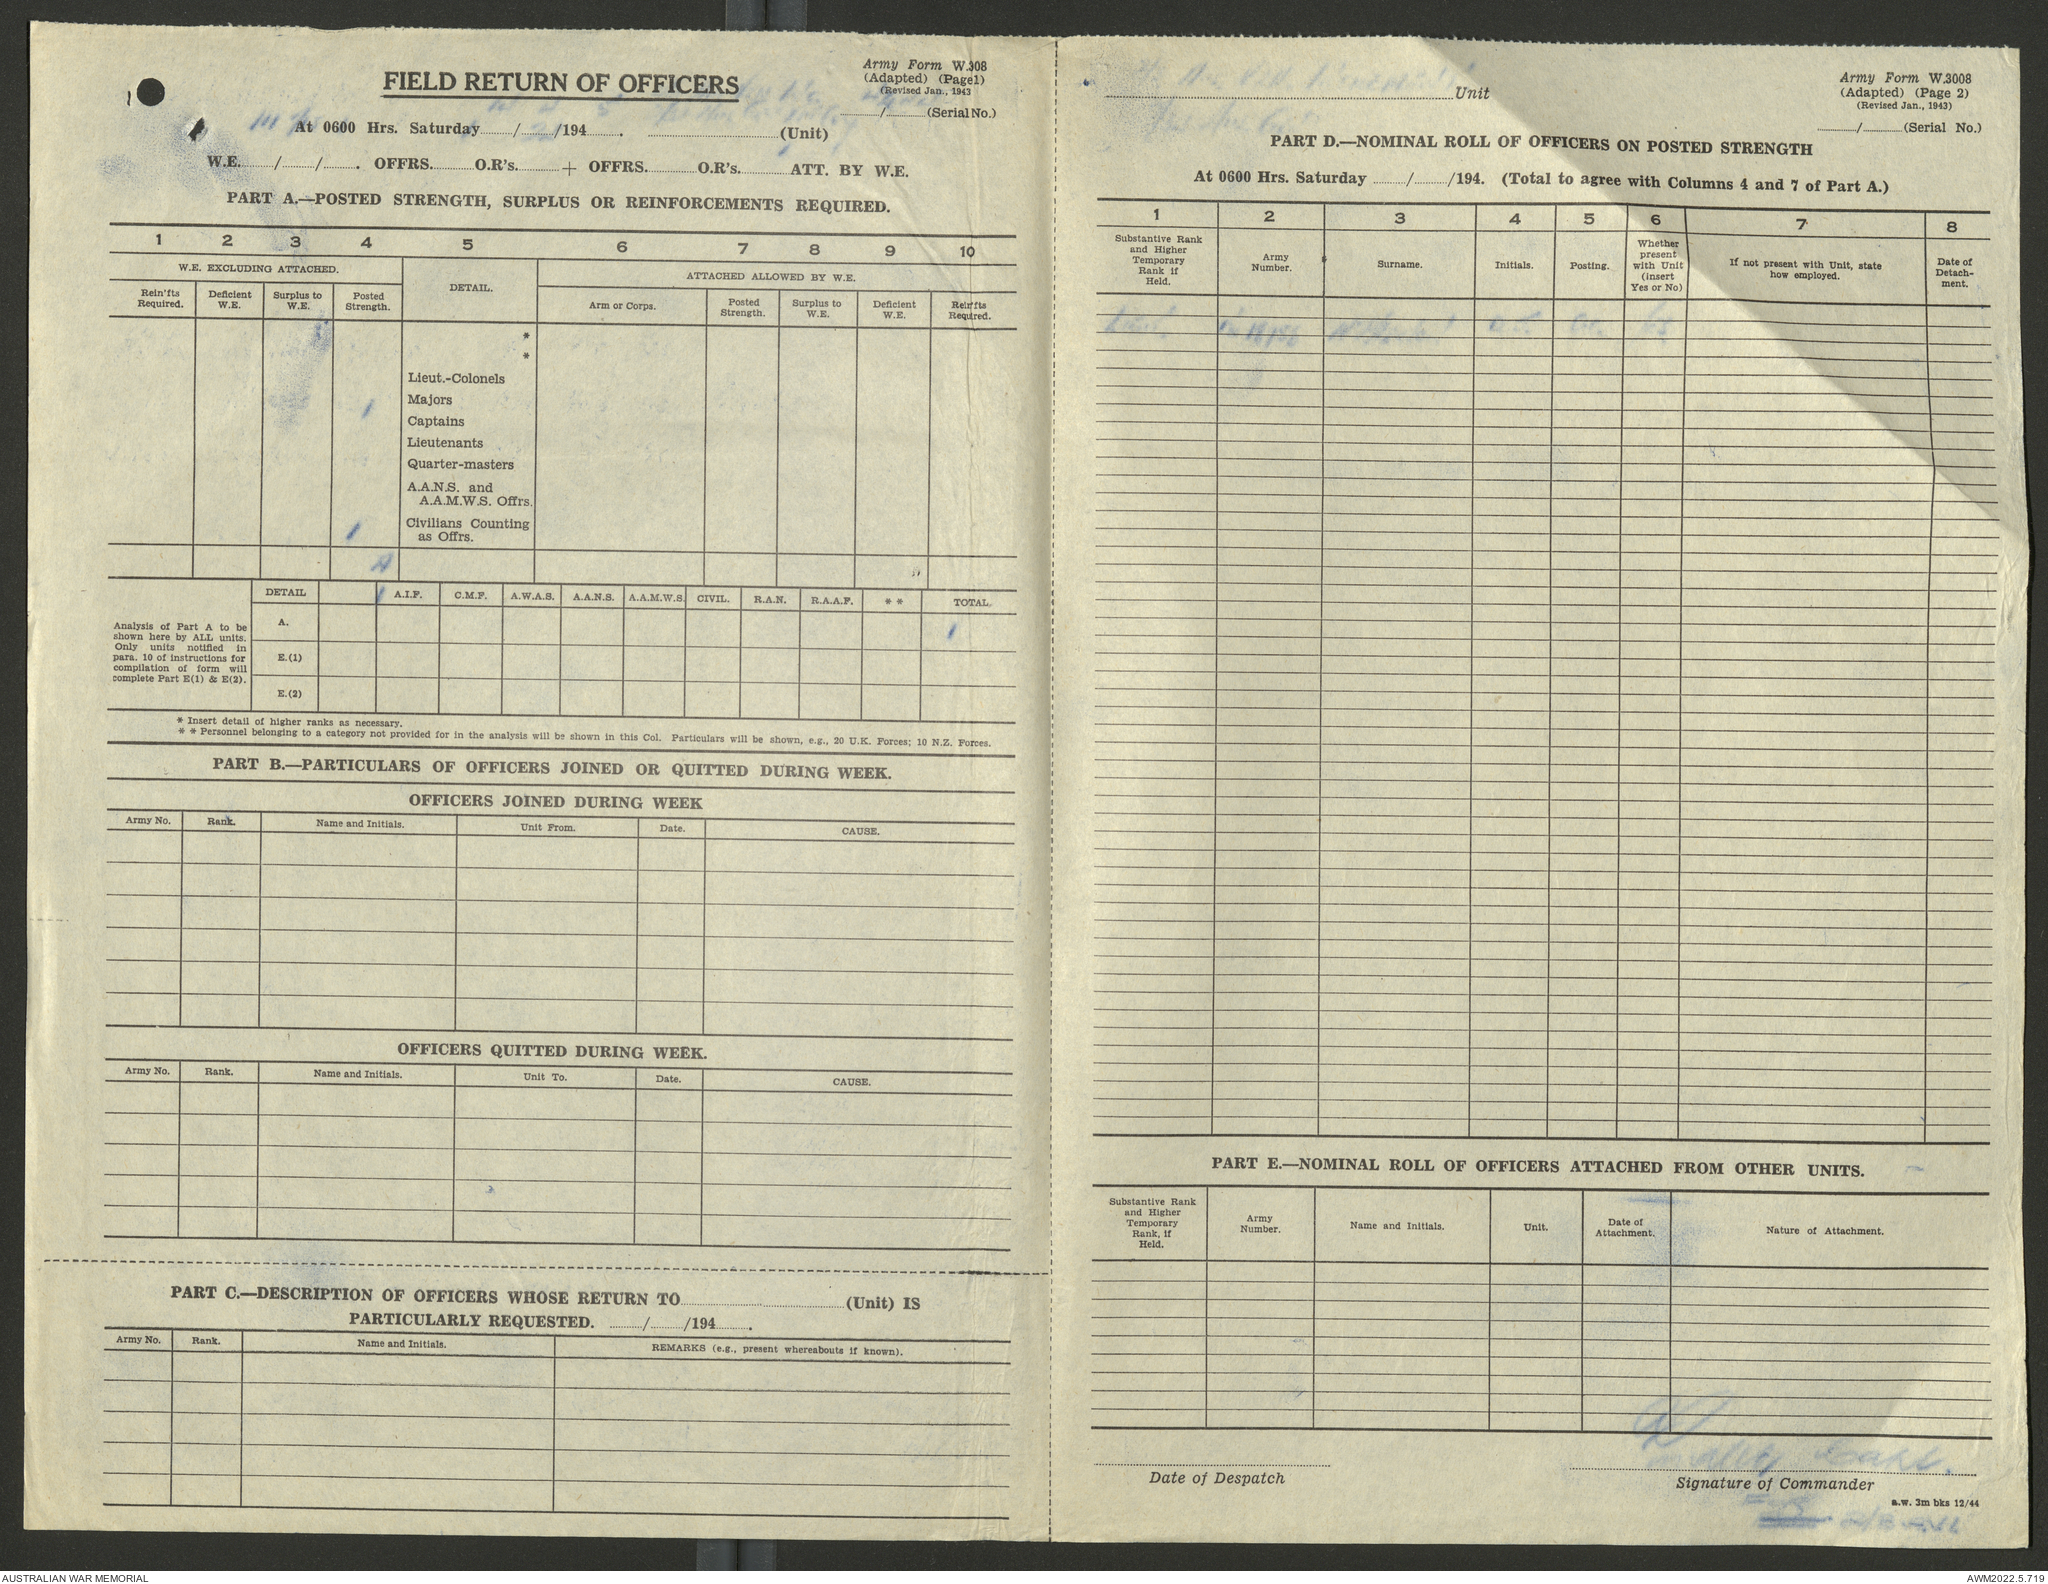 Army Form W.308
(Adapted) (Page1)
(Revised Jan., 1943
FIELD RETURN OF OFFICERS
....../......(Serial No.)
At 0600 Hrs. Saturday....../....../194...... . ......(Unit)
W.E....../....../...... . OFFRS......O.R's......+ OFFRS......O.R's......ATT. BY W.E.
PART A.—POSTED STRENGTH, SURPLUS OR REINFORCEMENTS REQUIRED.
1 2 3 4 5 6 7 8 9 10
W.E. EXCLUDING ATTACHED. DETAIL. ATTACHED ALLOWED BY W.E.
Rein'fts Required. Deficient W.E. Surplus to W.E. Posted Strength. Arm or Corps. Posted Strength. Surplus to W.E. Deficient W.E. Rein'fts Required.
*
*
Lieut.-Colonels
Majors
1
Captains
Lieutenants
Quarter-masters
A.A.N.S. and
A.A.M.W.S. Offrs.
Civilians Counting
1
as Offrs.
A
DETAIL 1 A.I.F. C.M.F. A.W.A.S. A.A.N.S. A.A.M.W.S. CIVIL. R.A.N. R.A.A.F. * * TOTAL.
Analysis of Part A to be
shown here by ALL units.
Only units notified in
para. 10 of instructions for
compilation of form will
complete Part E(1) & E(2).
A. 1
E.(1)
E.(2)
* Insert detail of higher ranks as necessary.
* * Personnel belonging to a category not provided for in the analysis will be shown in this Col. Particulars will be shown, e.g., 20 U.K. Forces; 10 N.Z. Forces.
PART B.—PARTICULARS OF OFFICERS JOINED OR QUITTED DURING WEEK.
OFFICERS JOINED DURING WEEK
Army No. Rank. Name and Initials. Unit From. Date. CAUSE.
OFFICERS QUITTED DURING WEEK.
Army No. Rank. Name and Initials. Unit To. Date. CAUSE.
PART C.—DESCRIPTION OF OFFICERS WHOSE RETURN TO......(Unit) IS
PARTICULARLY REQUESTED. ....../....../194...... .
Army No. Rank. Name and Initials. REMARKS (e.g., present whereabouts if known).
Army Form W.3008
(Adapted) (Page 2)
(Revised Jan., 1943)
......Unit
....../......(Serial No.)
PART D.—NOMINAL ROLL OF OFFICERS ON POSTED STRENGTH
At 0600 Hrs. Saturday ....../....../194. (Total to agree with Columns 4 and 7 of Part A.)
1 2 3 4 5 6 7 8
Substantive Rank and Higher Temporary Rank if Held. Army Number. Surname. Initials. Posting. Whether present with Unit (insert Yes or No) If not present with Unit, state how employed. Date of Detach-ment.
Lieut.
PART E.—NOMINAL ROLL OF OFFICERS ATTACHED FROM OTHER UNITS.
Substantive Rank and Higher Temporary Rank, if Held. Army Number. Name and Initials. Unit. Date of Attachment. Nature of Attachment.
Date of Despatch
Signature of Commander
a.w. 3m bks 12/44
AUSTRALIAN WAR MEMORIAL
AWM2022.5.719